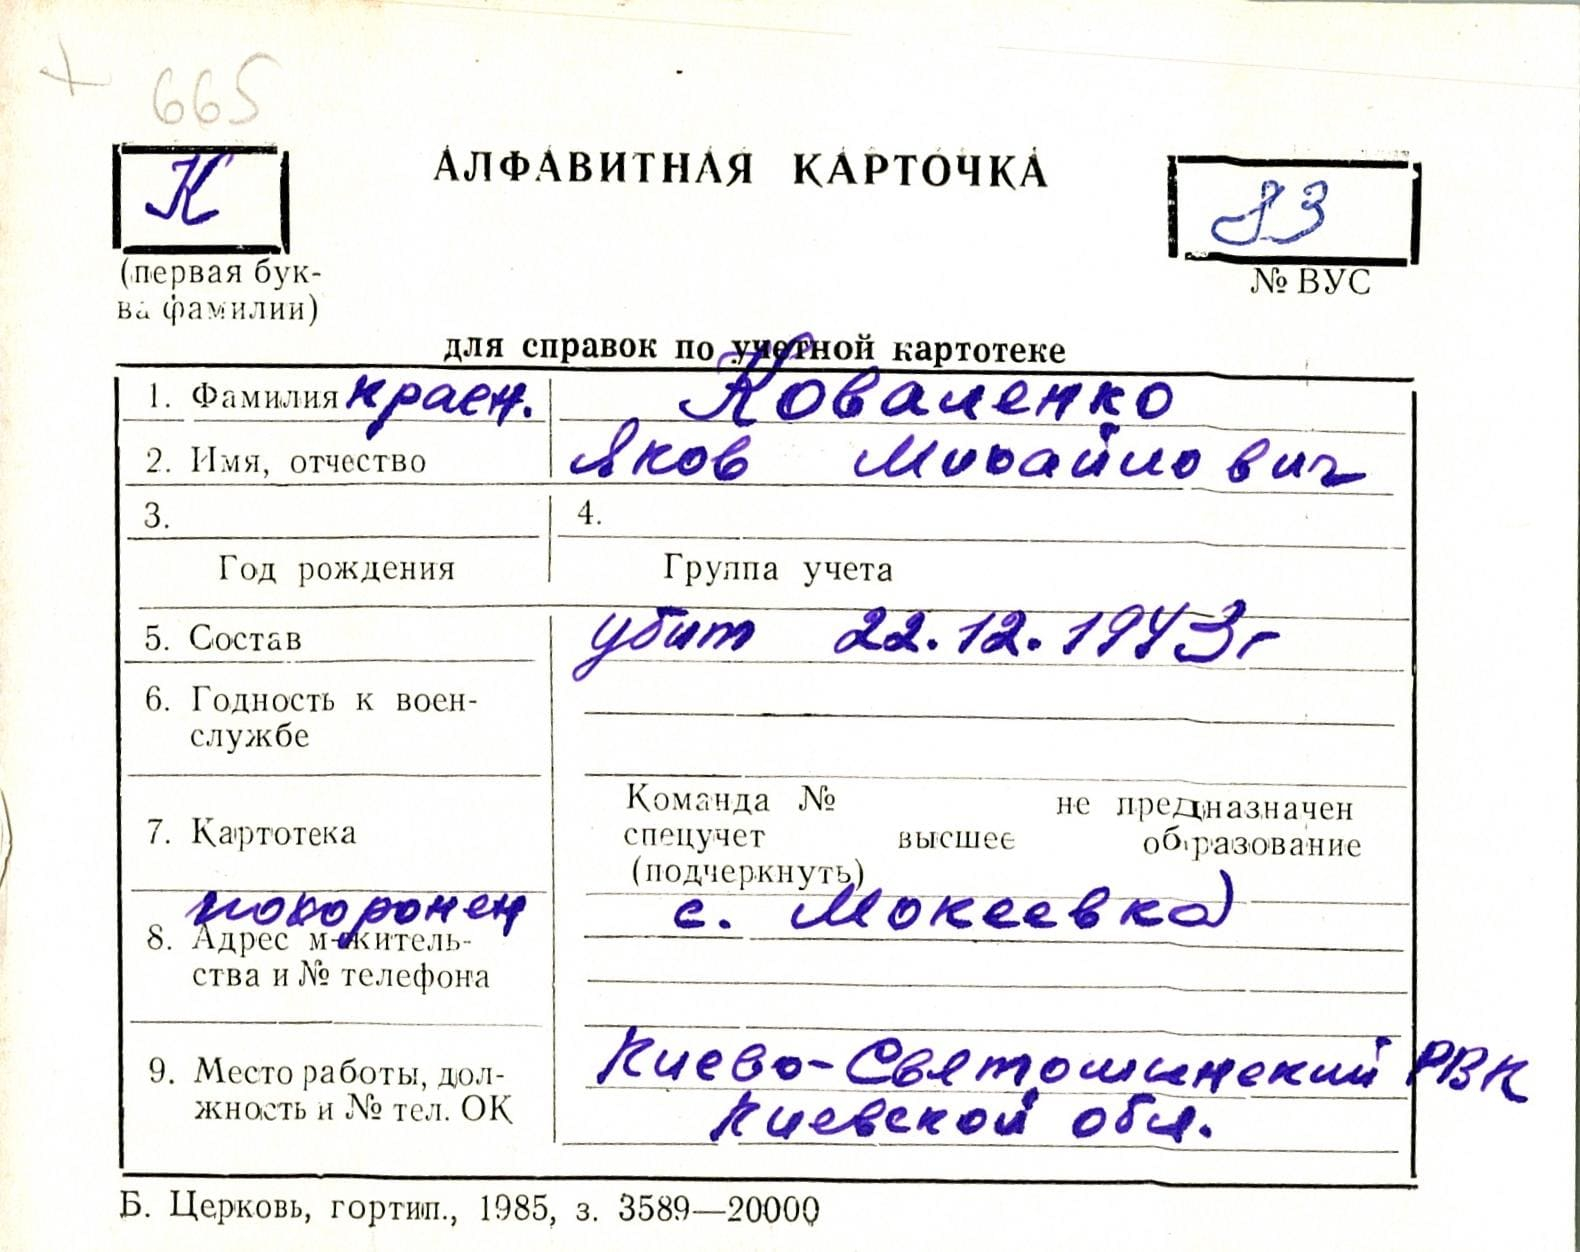 665
К
АЛФАВИТНАЯ КАРТОЧКА
83
(первая бук-
ва фамилии)
№ ВУС
для справок по учетной картотеке
1. Фамилия красн. Коваленко
2. Имя, отчество Яков Михайлович
3. 4.
Год рождения Группа учета
5. Состав убит 22.12.1943г
6. Годность к воен-
службе
Команда № не предназначен
7. Картотека спецучет высшее образование
(подчеркнуть)
похоронен с. Мокеевка
8. Адрес м-житель-
ства и № телефона
Киево-Святошинский РВК
9. Место работы, дол-
жность и № тел. ОК Киевской обл.
Б. Церковь, гортип., 1985, з. 3589—20000